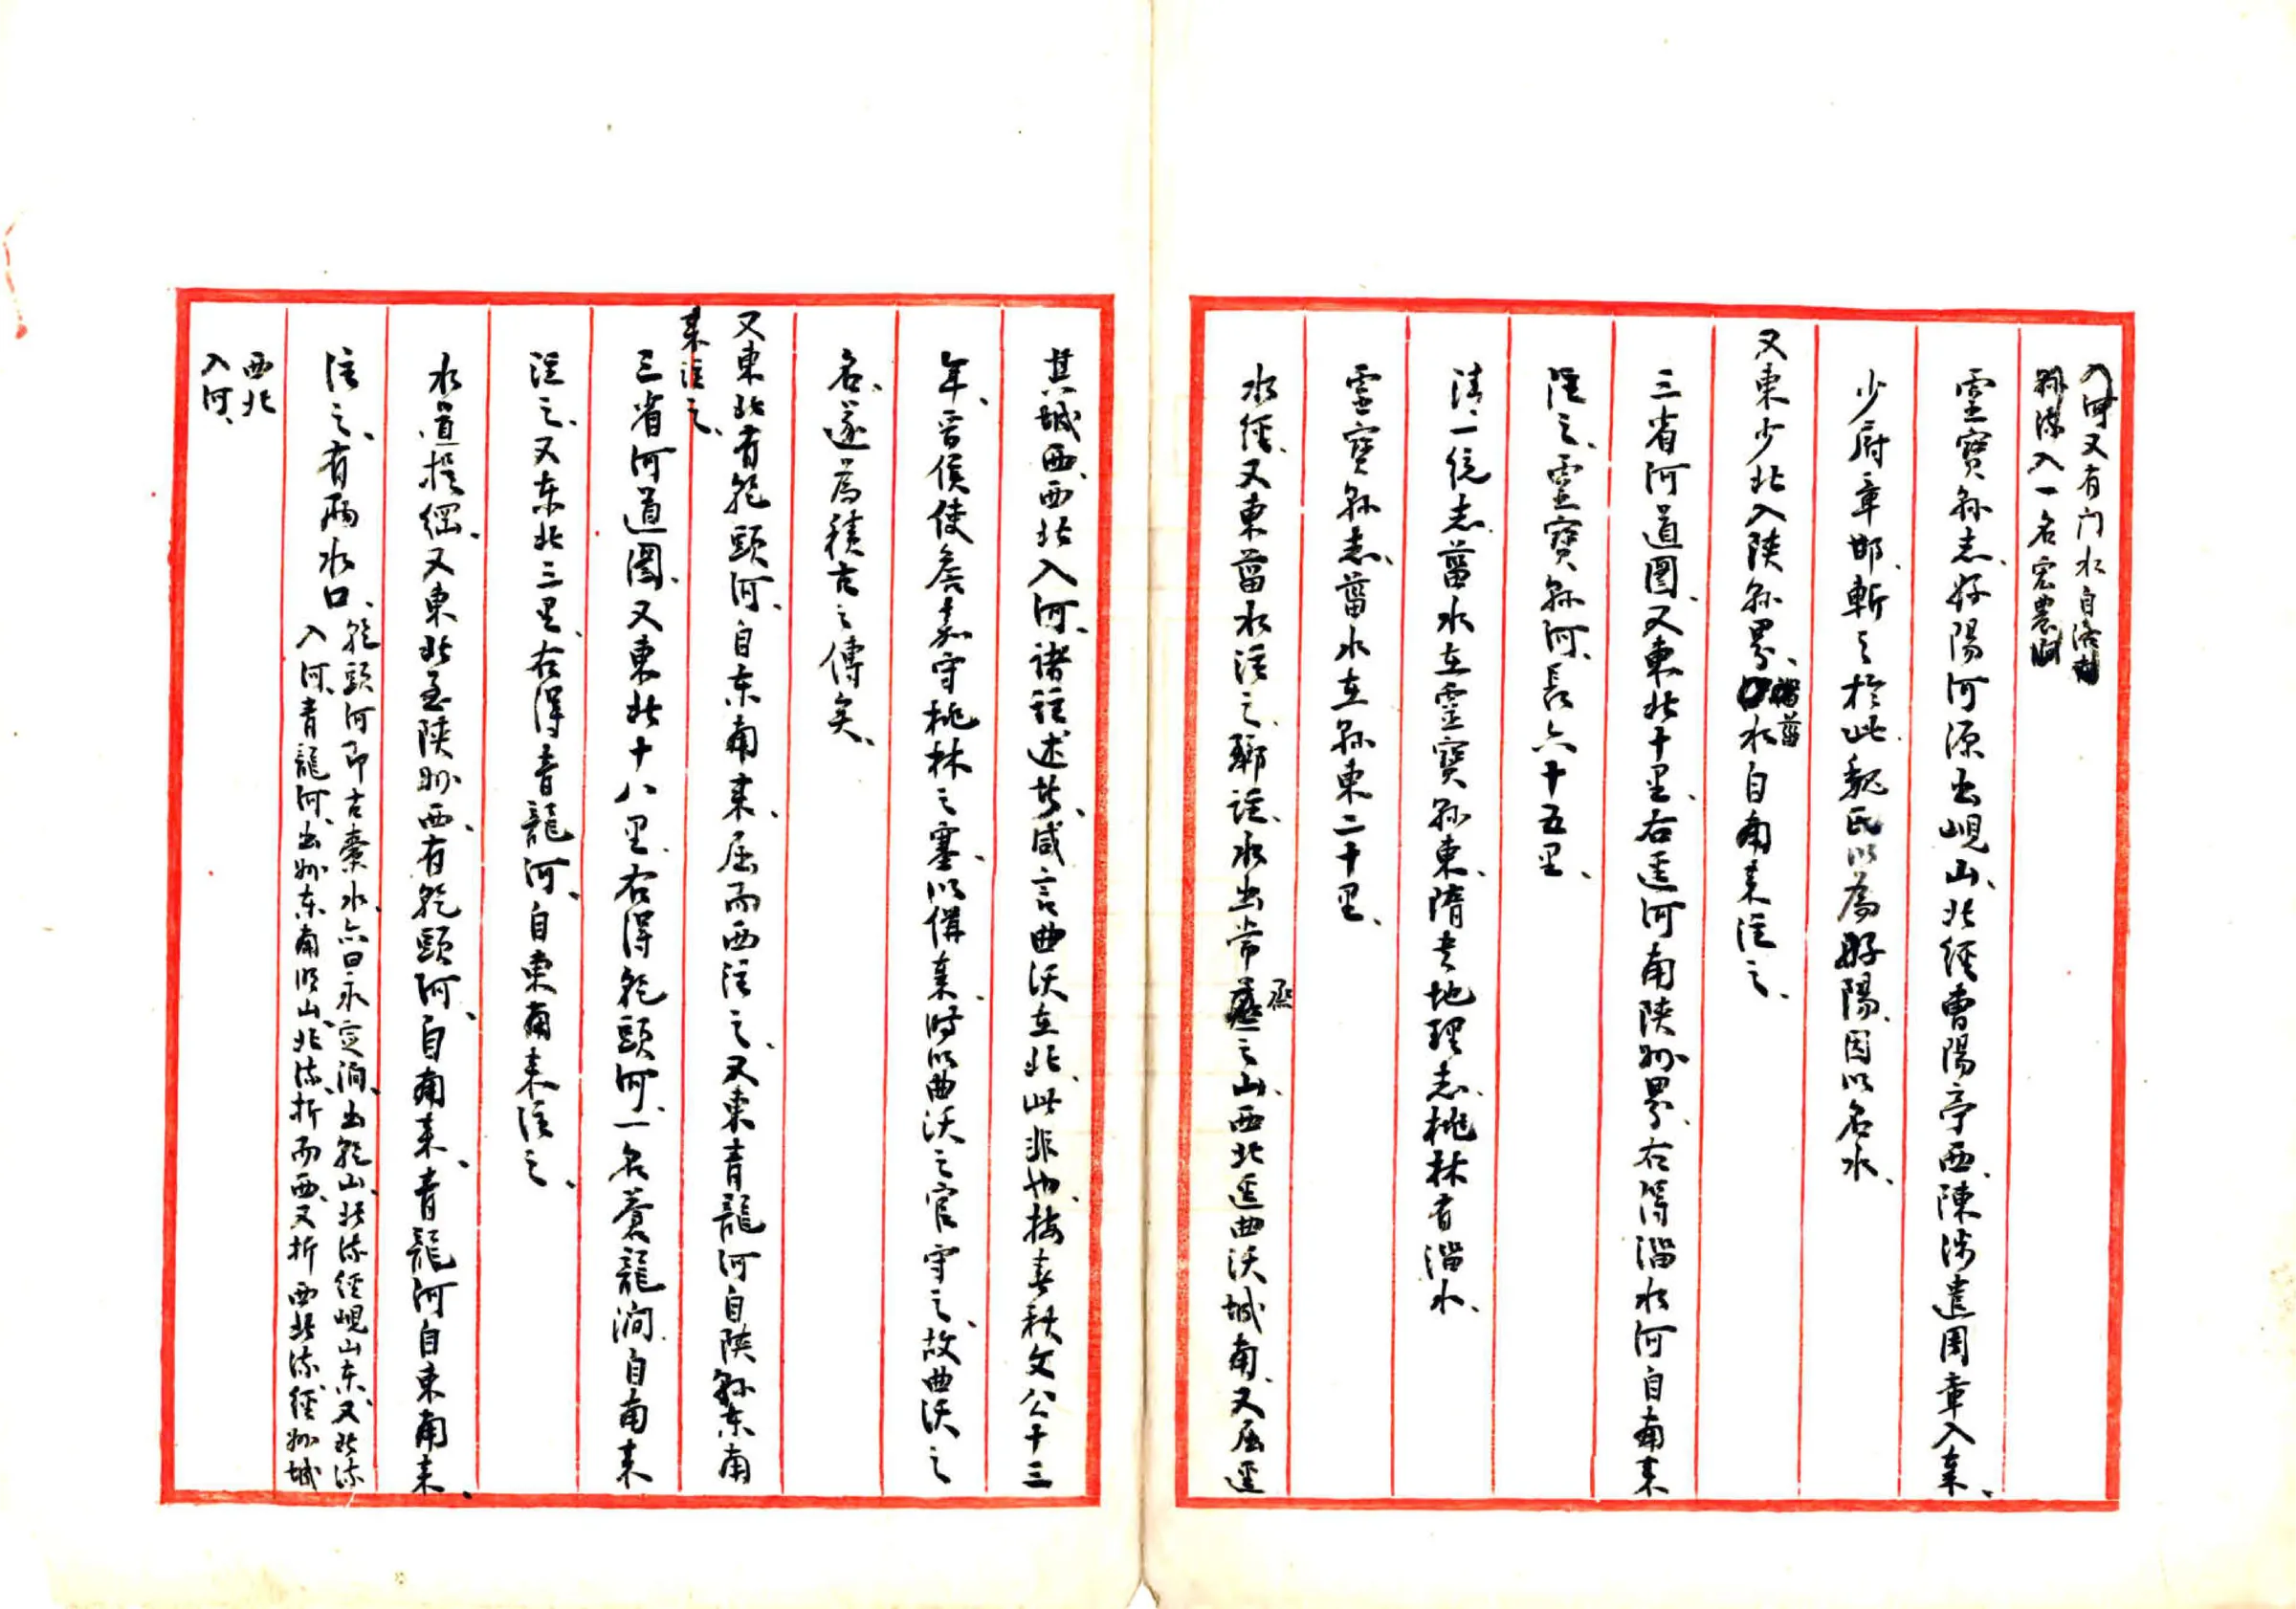 入河又有门水自洛南
縣流入一名宏農澗
靈寶縣志、好陽河源出峴山、北經曹陽亭西、陳涉遣周章入秦、
少府章邯、斬之於此、魏氏以為好陽、因以名水、
又東少北入陝縣界、淄菑水自南来注之、
三省河道圖、又東北十里、右逕河南陝州界、右得淄水河自南来
注之、靈寶縣河、長六十五里、
清一統志、菑水在靈寶縣東、隋書地理志、桃林有淄水、
靈寶縣志、菑水在縣東二十里、
水經、又東菑水注之、酈注、水出常烝之山、西北逕曲沃城南、又屈逕
其城西、西北入河、諸注述者、咸言曲沃在北、此非也、按春秋文公十三
年、晉侯使詹嘉守桃林之塞、以備秦、時以曲沃之官守之、故曲沃之
名、遂為積古之傳矣、
又東北有乾頭河、自东南来、屈而西注之、又東青龍河自陝縣东南
来注之、
三省河道圖、又東北十八里、右得乾頭河、一名蒼龍澗、自南来
注之、又东北三里、右得青龍河、自東南来注之、
水道提綱、又東北至陝州西、有乾頭河、自南来、青龍河自東南来、
注之、有兩水口、
乾頭河即古橐水、亦曰永定澗、出乾山、北流經峴山东、又北流
入河、青龍河、出州东南山、北流、折而西、又折西北流、經州城
西北
入河、